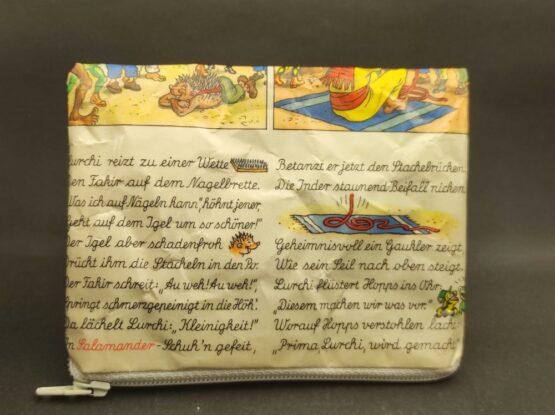 urchi reizt zu einer Wette
en Fakir auf dem Nagelbrette.
Was ich auf Nägeln kann", höhnt jener,
Geht auf dem Igel um so schöner!"
Der Igel aber schadenfroh
rückt ihm die Stacheln in den Po.
Der Fakir schreit: „Au weh! Au weh!",
pringt schmerzgepeinigt in die Höh'.
Da lächelt Lurchi: „Kleinigkeit!"
n Salamander-Schuh'n gefeit,
Betanzt er jetzt den Stachelrücken.
Die Inder staunend Beifall nicken.
Geheimnisvoll ein Gaukler zeigt,
Wie sein Seil nach oben steigt.
Lurchi flüstert Hopps ins Ohr:
„Diesem machen wir was vor."
Worauf Hopps verstohlen lach
„Prima Lurchi, wird gemach